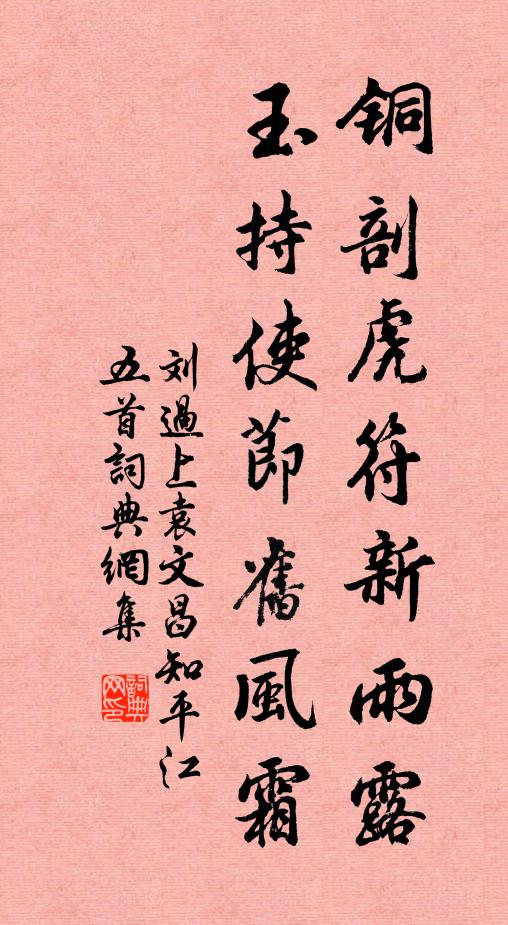 銅剖虎符新雨露
玉持使節舊風霜
刘過上袁文昌知平江
五首詞典網集
詞典
网印